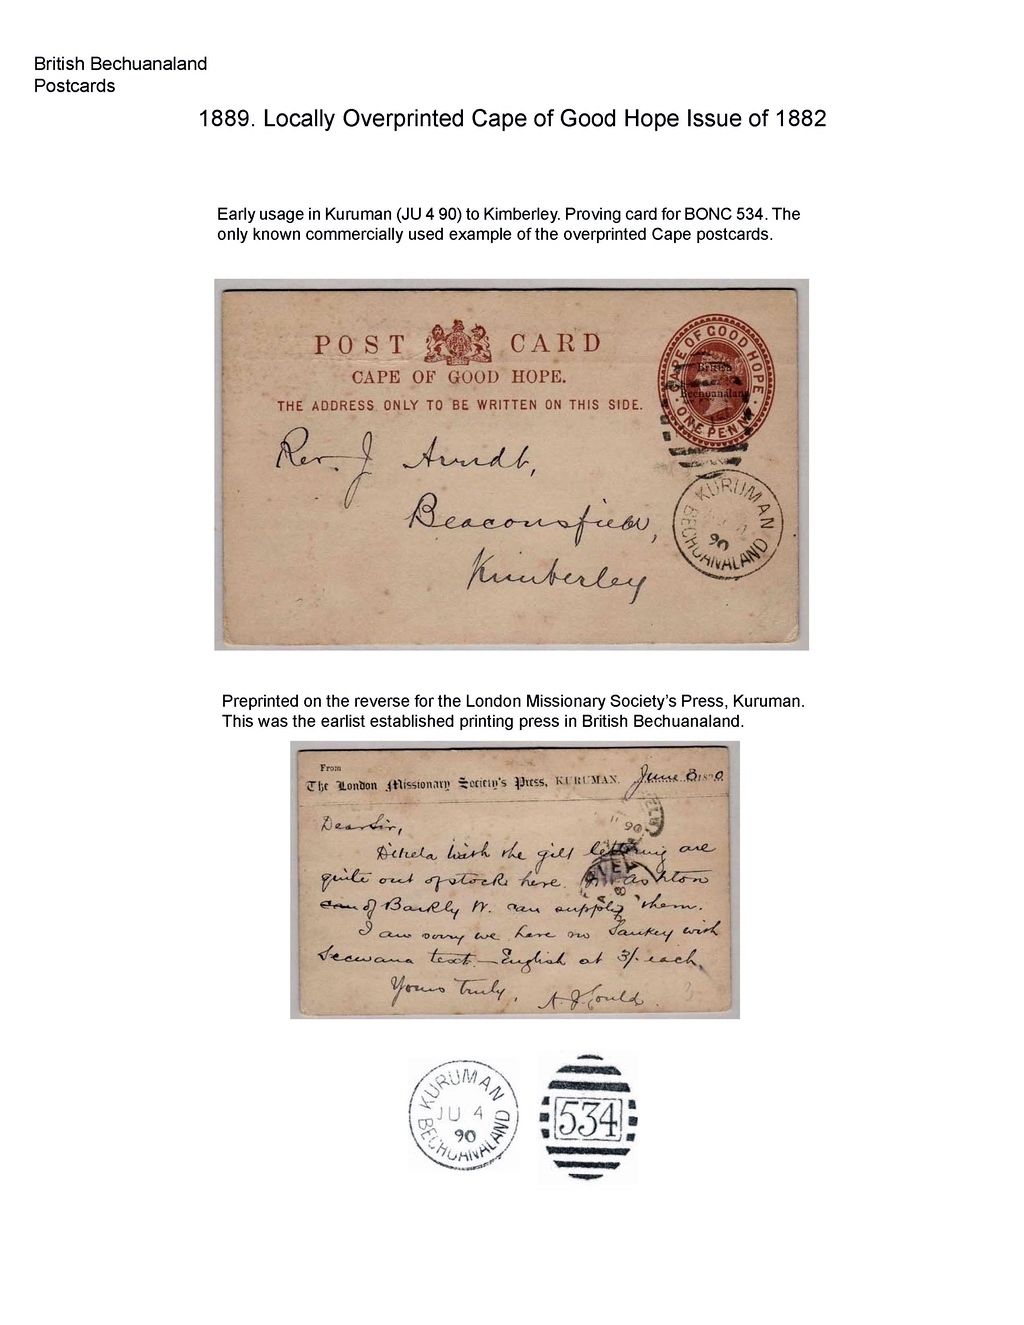 British Bechuanaland
Postcards
1889. Locally Overprinted Cape of Good Hope Issue of 1882
Early usage in Kuruman (JU 4 90) to Kimberley. Proving card for BONC 534. The
only known commercially used example of the overprinted Cape postcards.
POST CARD
CAPE OF GOOD HOPE.
THE ADDRESS ONLY TO BE WRITTEN ON THIS SIDE.
CAPE OF GOOD HOPE
ONE PENNY
British
Bechuanaland
Rev. J Arndt,
Beaconsfield,
Kimberley
KURUMAN
90
BECHUANALAND
Preprinted on the reverse for the London Missionary Society's Press, Kuruman.
This was the earlist established printing press in British Bechuanaland.
From
The London Missionary Society's Press, KURUMAN. June 3 1890
11
90
Dear Sir,
Dihela with the gilt lettering are
quite out of stock here. Mr Ashton
can of Barkly W. can supply them.
I am sorry we have no Sankey with
Secwana text — English at 3/- each.
Yours truly, A. J. Gould.
KURUMAN
JU 4
90
BECHUANALAND
534